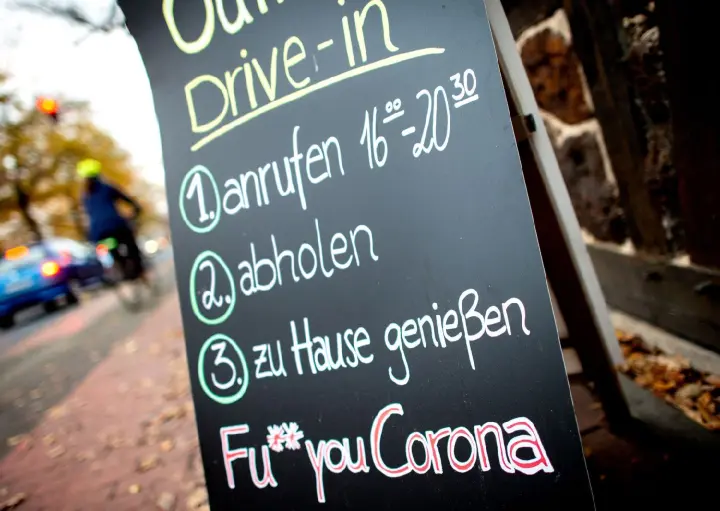 Drive-in
1. anrufen 16⁰⁰-20³⁰
2. abholen
3. zu Hause genießen
Fu** you Corona